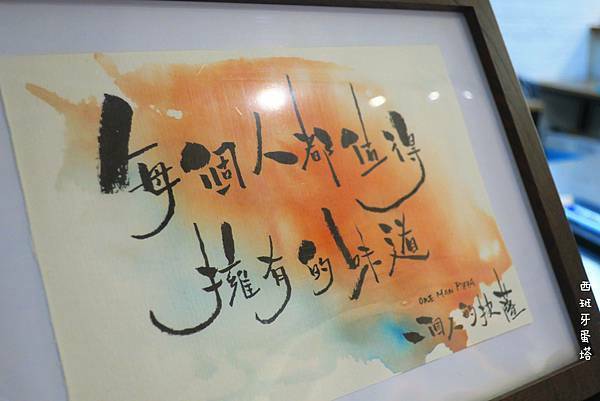 每個人都值得
擁有的味道
ONE MAN PIZZA
一個人的披薩
西班牙蛋塔